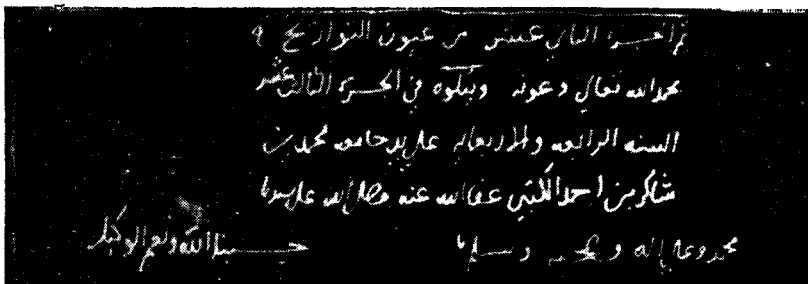 تم الجزء الثاني عشر من عيون التواريخ
بحمد الله تعالى وعونه ويتلوه في الجزء الثالث عشر
السنه الرابعه والاربعمايه على يد جامعه محمد بن
شاكر بن احمد الكتبي عفا الله عنه وصلى الله على سيدنا
محمد وعلى اله وصحبه وسلم حسبنا الله ونعم الوكيل